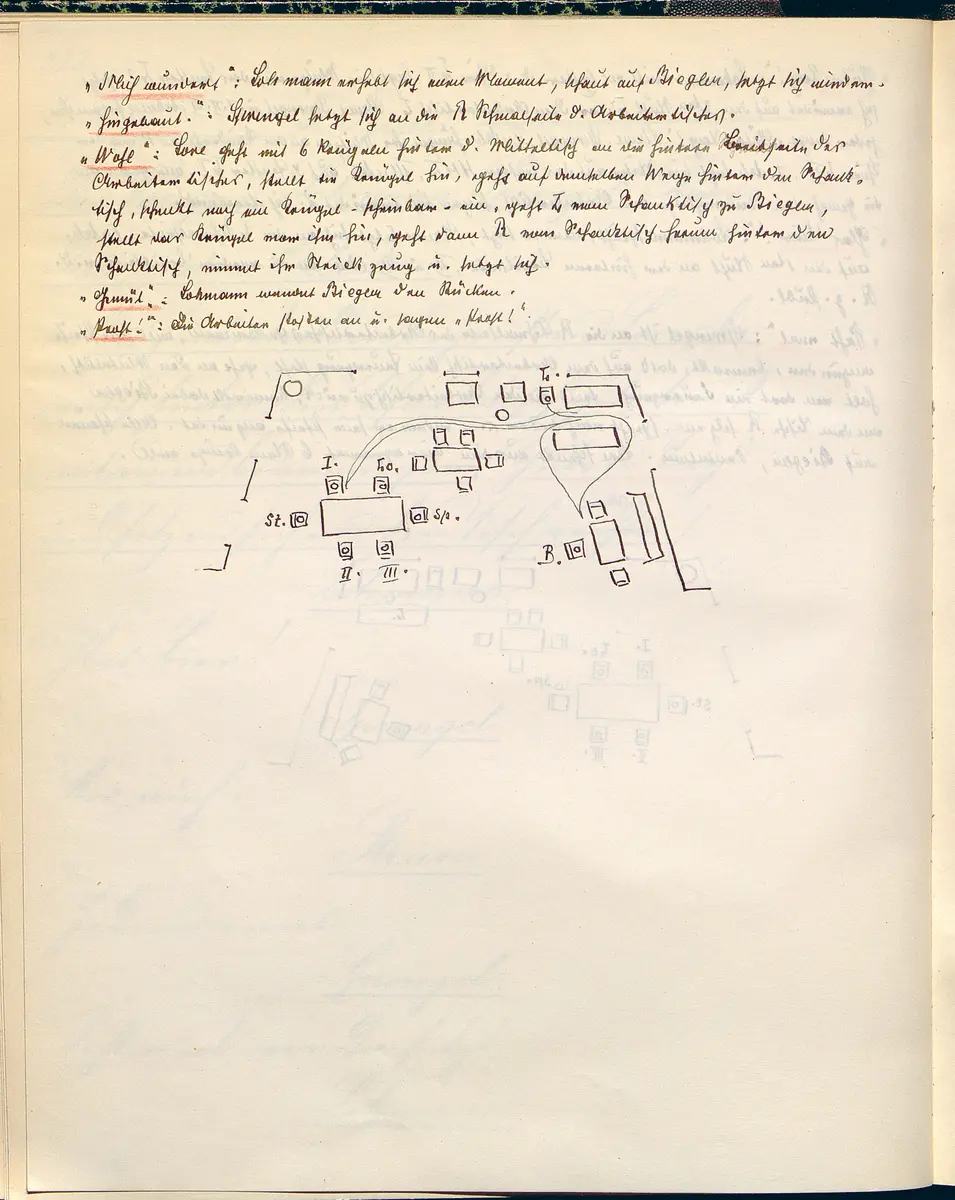 „Mich wundert": Lohmann erhebt sich einen Moment, schaut auf Biegler, setzt sich wieder.-
„hingehaut.": Sprengel setzt sich an die R Schmalseite d. Arbeitertisches.
„Wohl": Lore geht mit 6 Krügeln hinter d. Mitteltisch an die hintere Breitseite des
Arbeitertisches, stellt die Krügel hin, geht auf demselben Wege hinter den Schank-
tisch, schenkt noch ein Krügel - scheinbar - ein, geht L vom Schanktisch zu Biegler,
stellt das Krügel vor ihm hin, geht dann R vom Schanktisch herum hinter den
Schanktisch, nimmt ihr Strickzeug u. setzt sich.
„Gemüt": Lohmann wendet Biegler den Rücken.
„Prost!": Die Arbeiter stoßen an u. sagen „Prost!".
L.
I. Lo.
St. Sp.
B.
II. III.